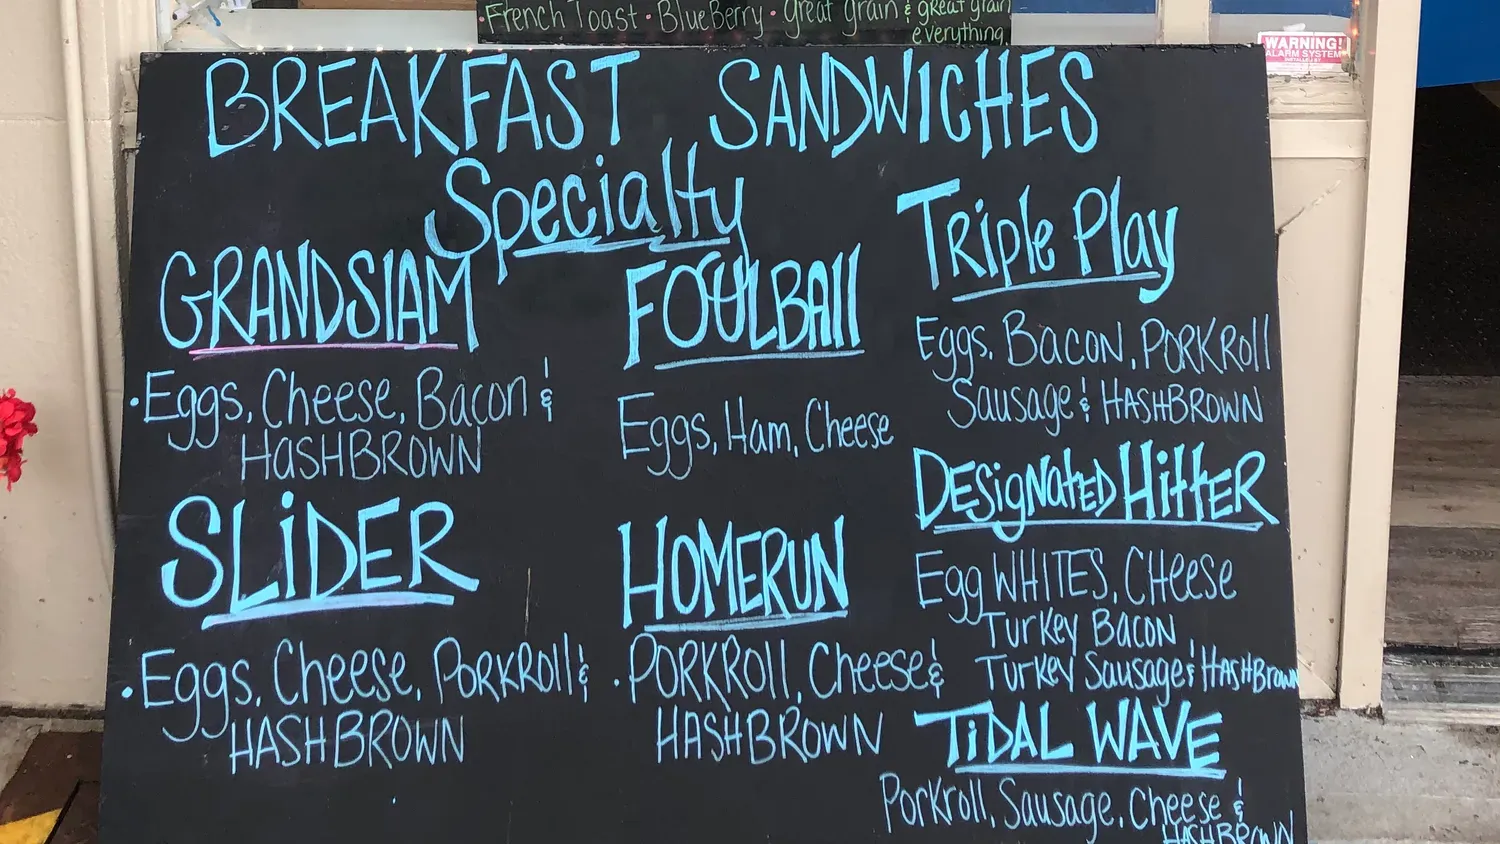 ·French Toast · BlueBerry · great grain & great grain
everything
WARNING!
ALARM SYSTEM
BREAKFAST SANDWICHES
Specialty
GRANDSlAM
·Eggs, Cheese, Bacon &
HASHBROWN
SLiDER
·Eggs, Cheese, PORKROll &
HASHBROWN
FOULBAll
Eggs, Ham, Cheese
HOMERUN
·PORKROll, Cheese &
HASHBROWN
TRiple Play
Eggs, BACON, PORKROll
Sausage & HASHBROWN
DESigNatED HittER
Egg WHITES, CHeese
Turkey Bacon
Turkey Sausage & HASHBROWN
TiDAL WAVE
Porkroll, Sausage, Cheese &
HASHBROWN